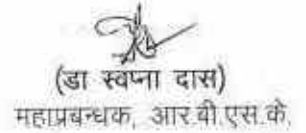 (डा स्वप्ना दास)
महाप्रबन्धक, आर.बी.एस.के.